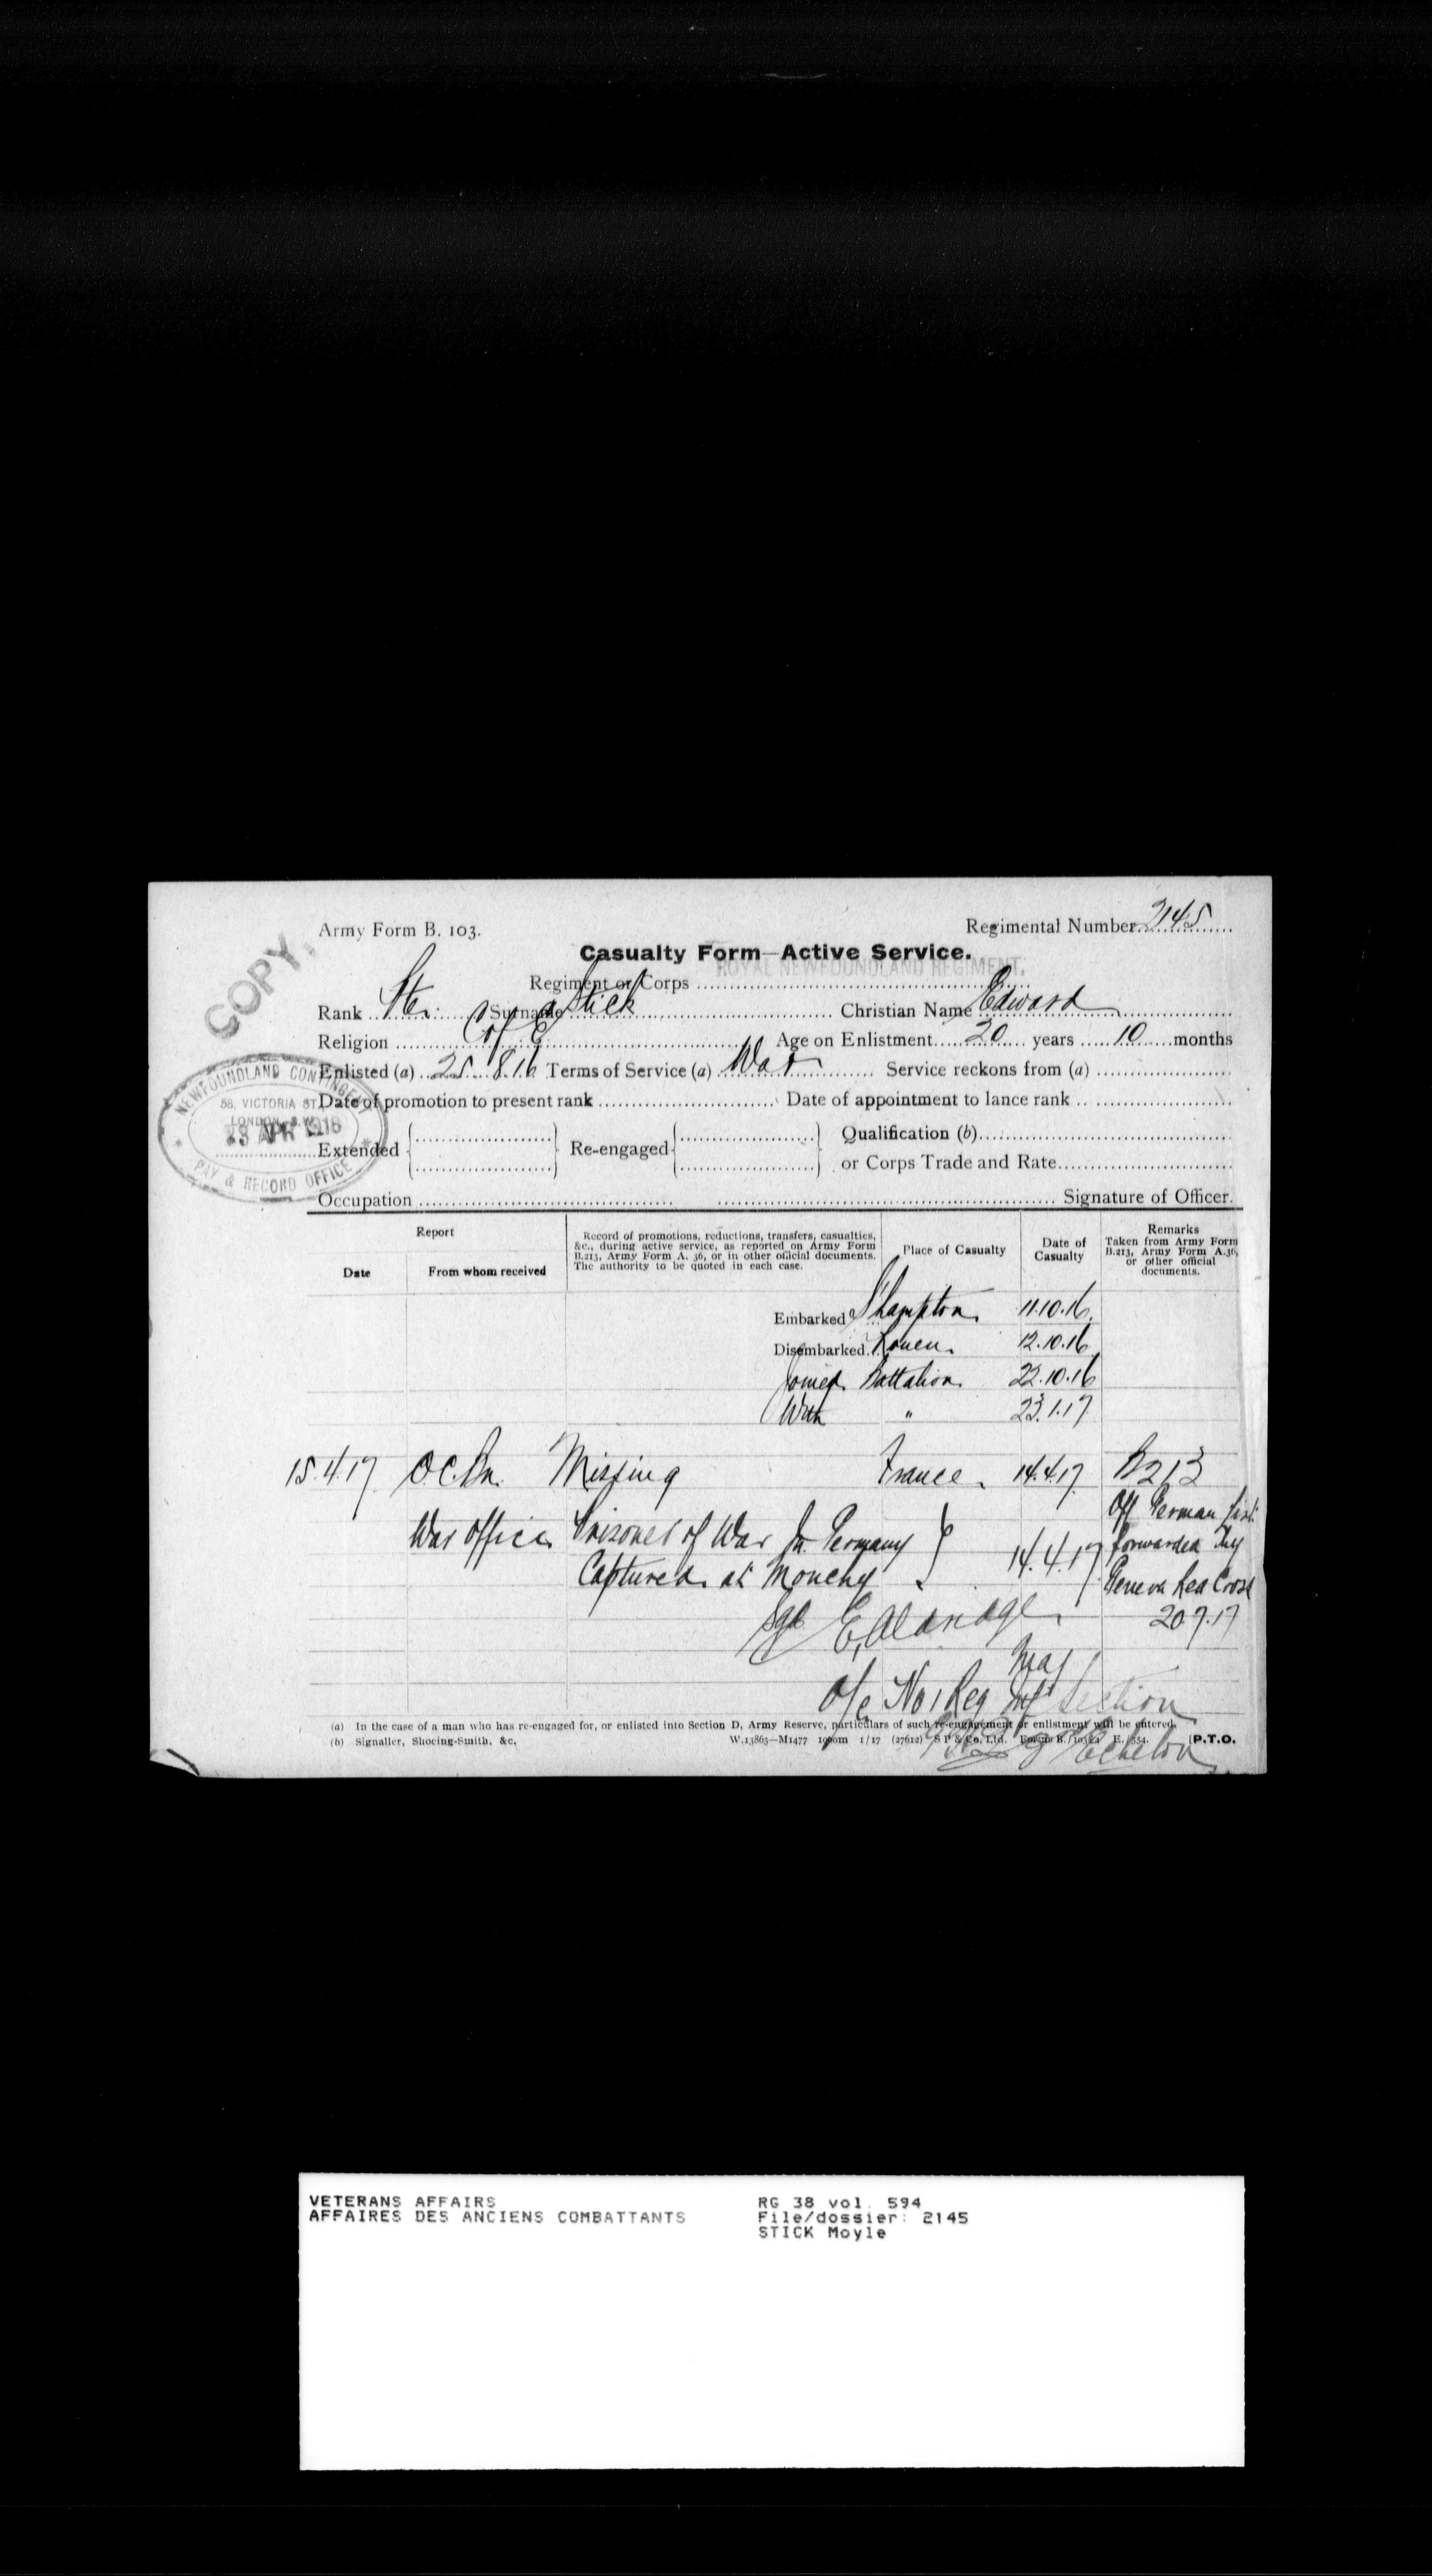 COPY.
Army Form B. 103.
Regimental Number 2145
Casualty Form—Active Service.
Regiment or Corps ROYAL NEWFOUNDLAND REGIMENT.
Rank Pte. Surname Stick Christian Name Edward
Religion C of E Age on Enlistment 20 years 10 months
Enlisted (a) 25.8.16 Terms of Service (a) War Service reckons from (a)
Date of promotion to present rank Date of appointment to lance rank
Extended Re-engaged Qualification (b)
or Corps Trade and Rate
Occupation Signature of Officer.
NEWFOUNDLAND CONTINGENT
58, VICTORIA ST.
LONDON, S.W.
APR 1918
PAY & RECORD OFFICE
Report
Date
From whom received
Record of promotions, reductions, transfers, casualties,
&c., during active service, as reported on Army Form
B.213, Army Form A. 36, or in other official documents.
The authority to be quoted in each case.
Place of Casualty
Date of
Casualty
Remarks
Taken from Army Form
B.213, Army Form A.36,
or other official
documents.
Embarked S'hampton 11.10.16.
Disembarked Rouen. 12.10.16
Joined Battalion. 22.10.16
With " 23.1.17
15.4.17 OC.Bn. Missing France. 14.4.17 B213
War Office Prisoner of War In Germany 14.4.17
Captured at Monchy
Off German list
forwarded by
Geneva Red Cross
20.7.17
Sgd E. Aldridge
Maj
O/c No 1 Reg Inf Section
Echelon
(a) In the case of a man who has re-engaged for, or enlisted into Section D, Army Reserve, particulars of such re-engagement or enlistment will be entered.
(b) Signaller, Shoeing-Smith, &c.
W.13863—M1477 1/17 (27612) S P & Co., Ltd. P.T.O.
VETERANS AFFAIRS
AFFAIRES DES ANCIENS COMBATTANTS
RG 38 vol. 594
File/dossier: 2145
STICK Moyle